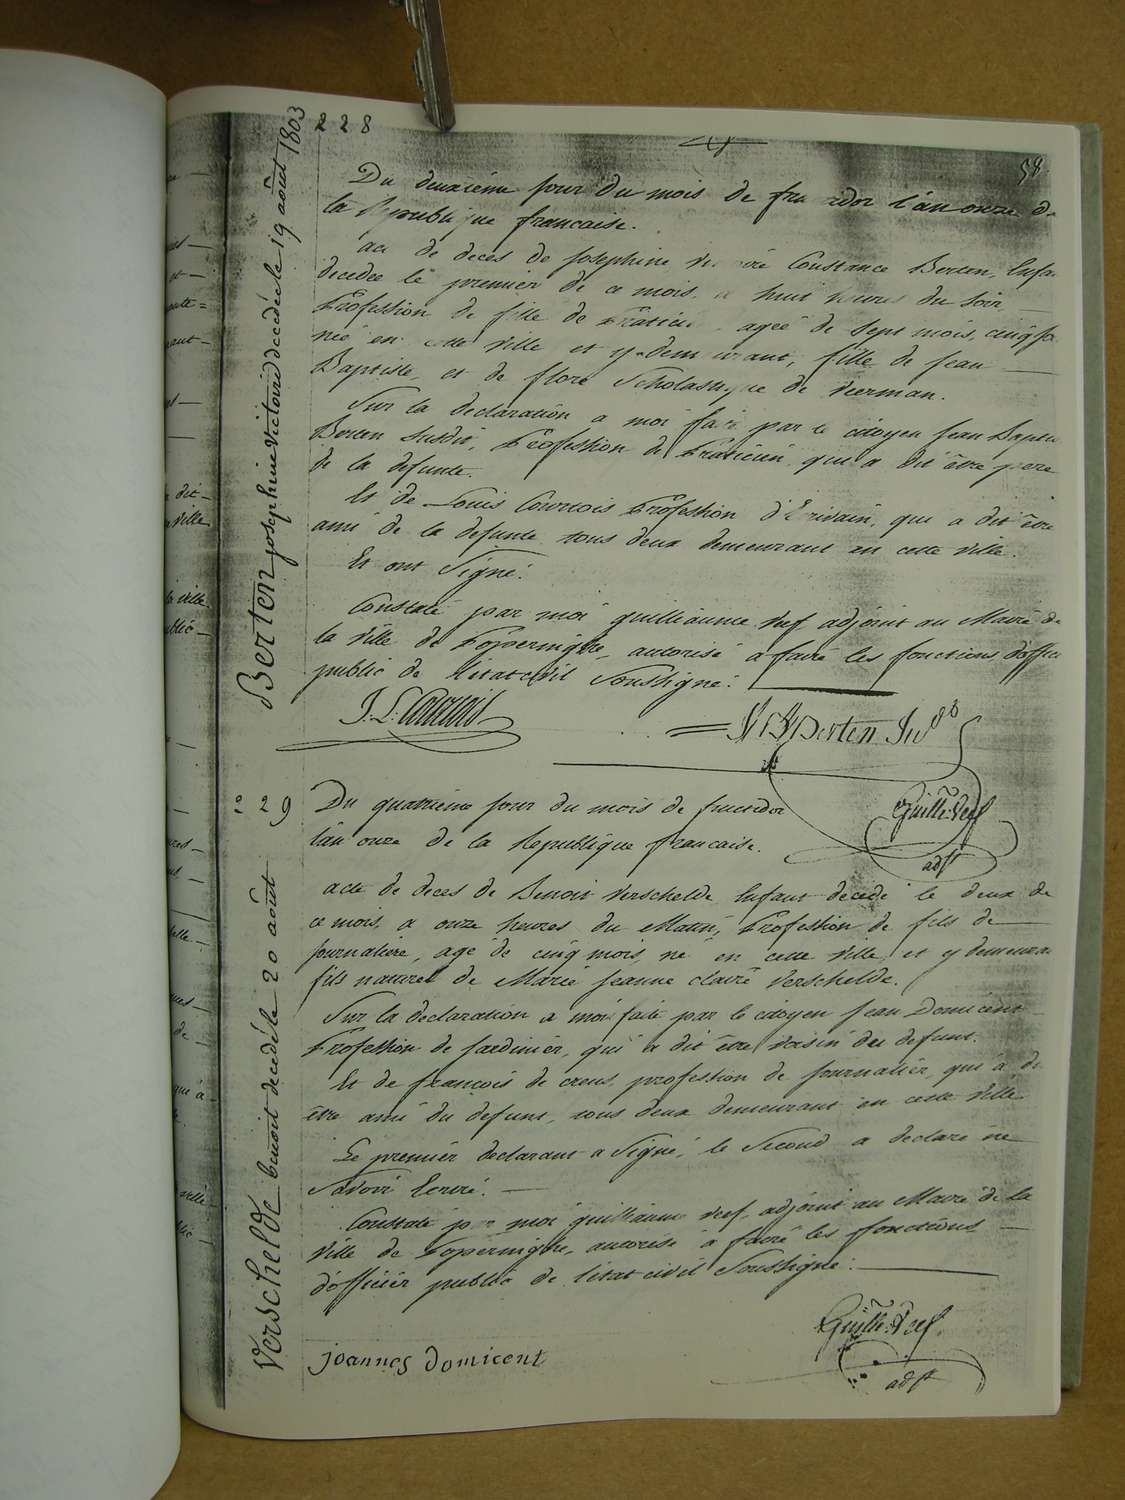 228
58
Berten josephine victoire decedée le 19 août 1803
Du deuxiéme jour du mois de fructidor l'an onze de
la Republique francaise.
acte de deces de Josephine Constance Berten, Enfant
decedée le premier de ce mois, a huit heures du soir,
Profession de fille de Praticien, ageé de sept mois, cinq jo
neé en cette ville et y demeurant, fille de Jean
Baptiste et de flore Scholastique de Veerman.
Sur la declaration a moi faite par le citoyen Jean Baptiste
Berten susdit, Profession de Praticien, qui a dit être pere
de la defunte.
Et de Louis Courtois Profession d'Ecrivain, qui a dit être
ami de la defunte, tous deux demeurant en cette ville.
Et ont Signé.
Constaté par moi guilliaume Verf adjoint au Maire de
la Ville de Poperinghe, autorisé a faire les fonctions d'offici
public de l'état civil Soussigné.
J. L. Courtois
Berten
Guille: Verf
adjt
229
Verschelde benoit decedé le 20 août
Du quatrieme jour du mois de fructidor
l'an onze de la Republique francaise.
acte de deces de Benoit Verschelde Enfant decedé le deux de
ce mois, a onze heures du Matin, Profession de fils de
Journaliere, agé de cinq mois, né en cette ville et y demeurant
fils naturel de Marie Jeanne claire Verschelde.
Sur la declaration a moi faite par le citoyen Jean Domicent
Profession de Jardinier, qui a dit être voisin du defunt.
Et de francois de creus, profession de Journalier, qui a dit
être ami du defunt, tous deux demeurant en cette ville
Le premier declarant a Signé, le Second a declaré ne
Savoir Ecrire.
Constaté par moi guilliaume Verf, adjoint au Maire de la
Ville de Poperinghe, autorisé a faire les fonctions
d'officier public de l'état civil Soussigné.
Guille: Verf
adjt
joannes domicent